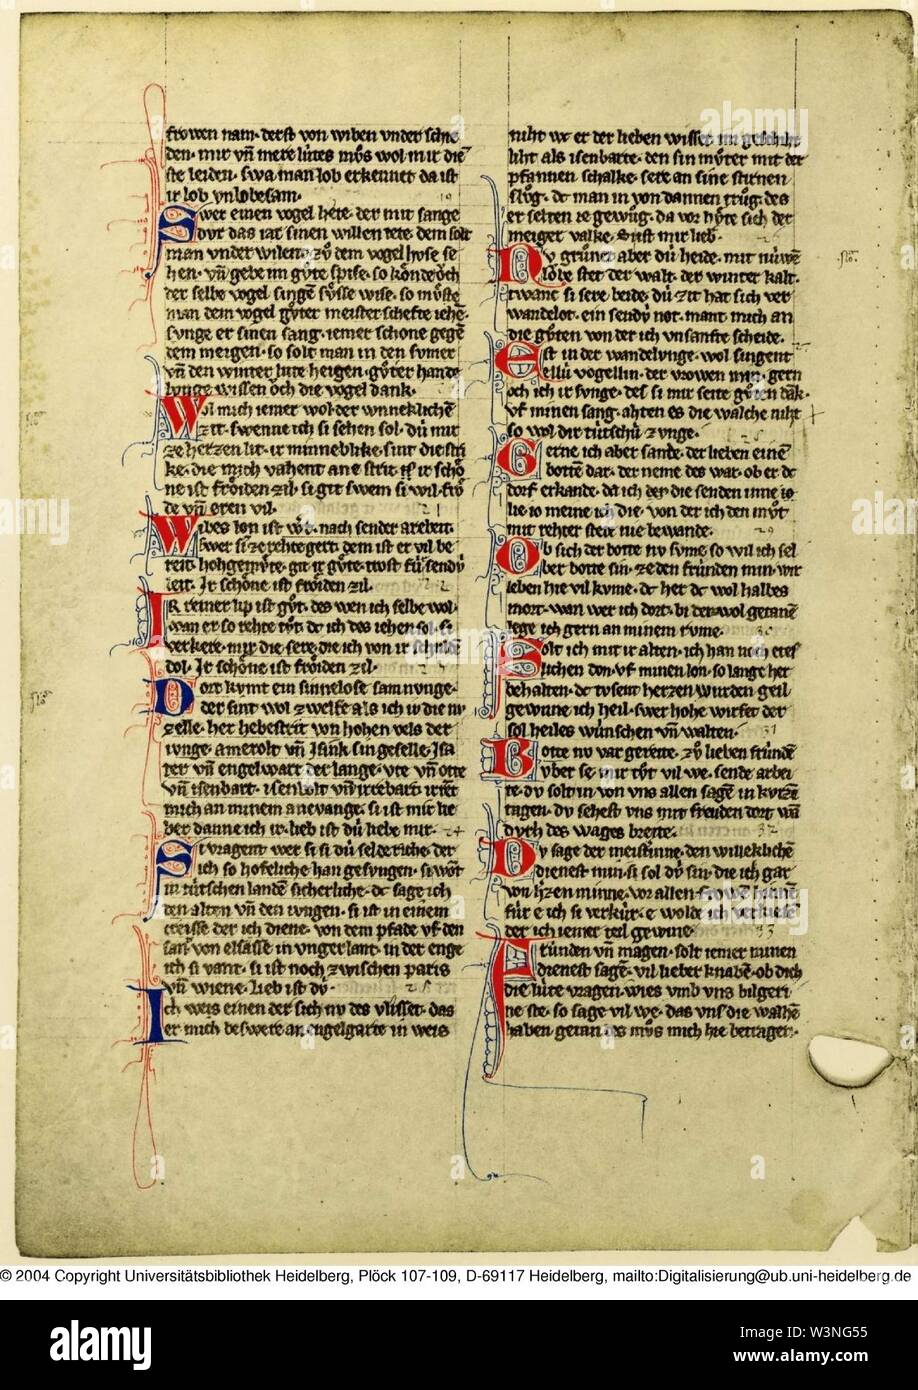 frowen nam· derst von wiben vnder sche
den· mir vn̄ mere lûtes mvͦs wol mir die
ste leiden· swa man lob erkennet da ist
ir lob vnlobesam·
Swer einen vogel hete· der mit sange
dvr das iar sinen willen tete· dem solt
man vnder wilen· zvͦ dem vogel hvse se
hen· vn̄ gebe im gvͦte spise· so kônde ôch
der selbe vogel singē svͦsse wise· so mvͦste
man dem vogel gvͦter meister schefte iehē·
svnge er sinen sang· iemer schone gegē
dem meigen· so solt man in den svmer
vn̄ den winter lute heigen· gvͦter hande
lvnge wissen ôch die vogel dank·
Wol mich iemer wol der wnneklichē
zit· swenne ich si sehen sol· dú mir
ze herzen lit· ir minneblike· sint die stri
ke· die mich vahent ane strit· ir schô
ne ist frôiden zil· si git swem si wil· frô
de vn̄ eren vil·
Wibes lon ist gvͦt· nach sender arebeit·
swer si ze rehte gert· dem ist er vil be
reit· hohgemvͤte· git ir gvͤte· trost fúr sendv
leit· Ir schône ist frôiden zil·
Ir reiner lip ist gvͦt· des wen ich selbe wol·
wan er so rehte tvͦt· dc ich des iehen sol· si
verkere· mir die sere· die ich von ir schulde
dol· Ir schône ist frôiden zil·
Dort kvmt ein sinnelose samnvnge·
der sint wol zwelfe als ich iv die
zelle· her hebestrit von hohen vels der
ivnge· amerolt vn̄ isank sin geselle· Isa
ger vn̄ engelwart der lange· vte vn̄ otte
vn̄ isenbart· isenbolt vn̄ irrebart irret
mich an minem anevange· si ist mir lie
ber danne ich ir· lieb ist dú liebe mir·
Si vragent wer si si dú selderiche· der
ich so hofeliche han gesvngen· si wôt
in tútschen landē sicherliche· dc sage ich
den alten vn̄ den ivngen· si ist in einem
creisse der ich diene· von dem pfade vf den
sant· von elsasse in vngerlant· in der enge
ich si vant· si ist noch zwischen paris
vn̄ wiene· lieb ist dv·
Ich weis einen der sich nv des vlisset· das
er mich beswere an engelgarte in weis
niht wc er der lieben wisset· im geschiht
liht als isenbarte· den sin mvͦter mit der
pfannen schalke· sere an sine stirnen
slvͦg· dc man in von dannen trvͦg· des
er selten ie gewvͦg· da vor hvͤte sich der
meiger valke· Sust mir lieb·
Nv grvͤnet aber dú heide· mit núwē
lôbe stet der walt· der winter kalt·
twanc si sere beide· dú zit hat sich ver
wandelot· ein sendv not· mant mich an
die gvͦten von der ich vnsanfte scheide·
Est in der wandelvnge· wol singent
ellú vogellin· der vrowen min· gern
och ich ir svnge· des si mir seite gvͦten dāk·
vf minen sang· ahten es die walche niht
so wol dir tútschú zvnge·
Gerne ich aber sande· der lieben einē
bottē dar· der neme des war· ob er dc
dorf erkande· da ich der die senden inne
lie io meine ich die· von der ich den mvͦt
mit rehter stete nie bewande·
Ob sich der botte nv svme· so wil ich sel
ber botte sin· ze den frúnden min· wir
leben hie vil kvme· dc her dc wol halbes
mort· wan wer ich dort· bi der wol getanē
lege ich gern an minem rvme·
Solt ich mit ir alten· ich han noch etes
lichen don· vf minen lon· so lange her
behalten· dc tvsent herzen wurden geil·
gewinne ich heil· swer hohe wirfet der
sol heiles wúnschen vn̄ walten·
Botte nv var gereite· zvͦ lieben frúndē
vber se· mir tvͦt vil we· sende arbei
te· dv solt in von vns allen sagē in kvrzē
tagen· dv sehest vns mit freuden dort wan̄
dvrh des wages breite·
Dv sage der meistrinne· den willeklichē
dienest min· si sol dv sin· die ich gar
von herzen minne· vor allen frowē hinnē
fúr e ich si verkúr· e wolde ich verliesē
der ich iemer teil gewinne·
Frúnden vn̄ magen· solt iemer minen
dienest sagē· vil lieber knabē· ob dich
die lúte vragen· wies vmb vns bilgeri
ne ste· so sage vil we· das vns die walhē
haben getan· es mvͦs mich hie betragen·
© 2004 Copyright Universitätsbibliothek Heidelberg, Plöck 107-109, D-69117 Heidelberg, mailto:Digitalisierung@ub.uni-heidelberg.de
alamy
Image ID: W3NG55
www.alamy.com